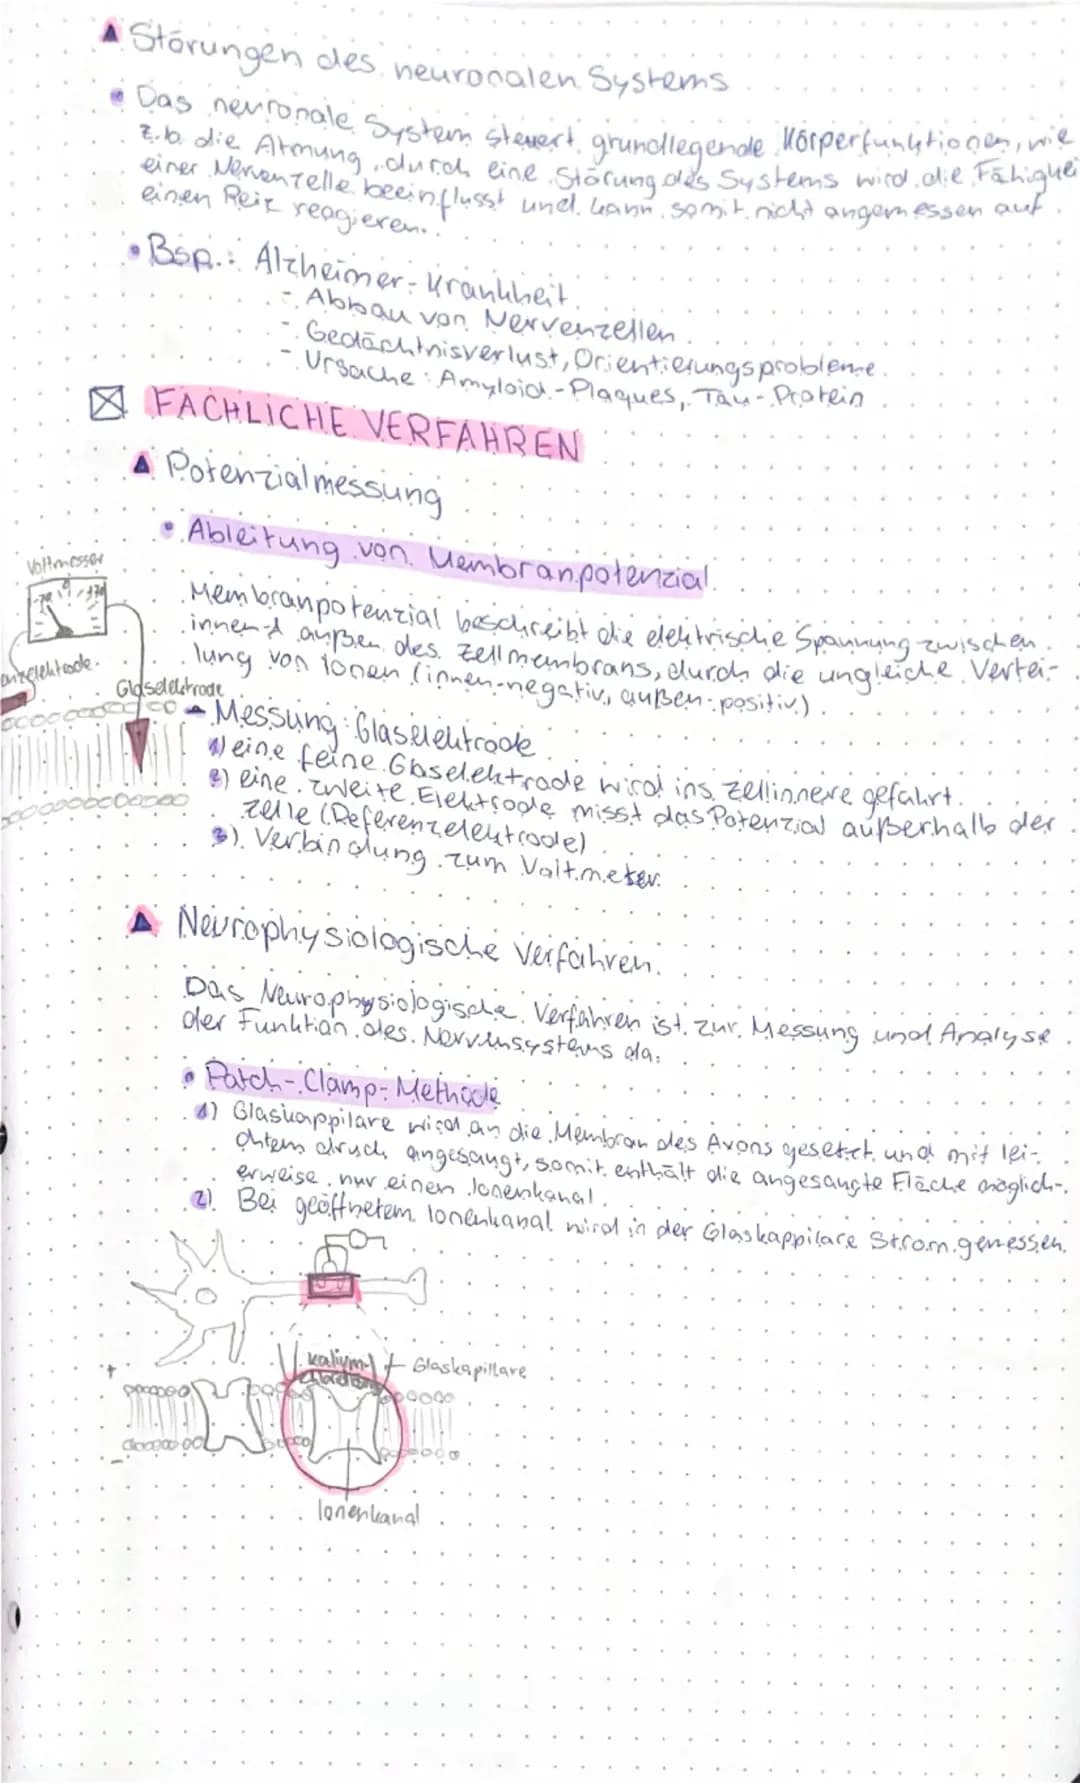 Störungen des neuronalen Systems
• Das neuronale System steuert grundlegende Körperfunktionen, wie
z.b. die Atmung, durch eine Störung des Systems wird die Fähigkei
einer Nervenzelle beeinflusst und kann somit nicht angemessen auf
einen Reiz reagieren.
• Bsp.: Alzheimer-Krankheit
- Abbau von Nervenzellen
- Gedächtnisverlust, Orientierungsprobleme
- Ursache: Amyloid-Plaques, Tau-Protein
FACHLICHE VERFAHREN
Potenzialmessung
• Ableitung von Membranpotenzial
Voltmesser
-70 0
Membranpotenzial beschreibt die elektrische Spannung zwischen
innen & außen des Zellmembrans, durch die ungleiche Vertei-
lung von Ionen (innen-negativ, außen-positiv)
enzelektrode
Glaselektrode
- Messung: Glaselektrode
1) eine feine Glaselektrode wird ins Zellinnere gefährt
2) eine zweite Elektrode misst das Potenzial außerhalb der
Zelle (Referenzelektrode)
3) Verbindung zum Voltmeter
Neurophysiologische Verfahren
Das Neurophysiologische Verfahren ist zur Messung und Analyse
der Funktion des Nervensystems da.
• Patch-Clamp-Methode
1) Glaskappilare wird an die Membran des Axons gesetzt und mit lei-
chtem druck angesaugt, somit enthält die angesaugte Fläche möglich-
erweise nur einen Ionenkanal
2) Bei geöffnetem Ionenkanal wird in der Glaskappilare Strom gemessen.
kalium-
Glaskapillare
+
-
Ionenkanal